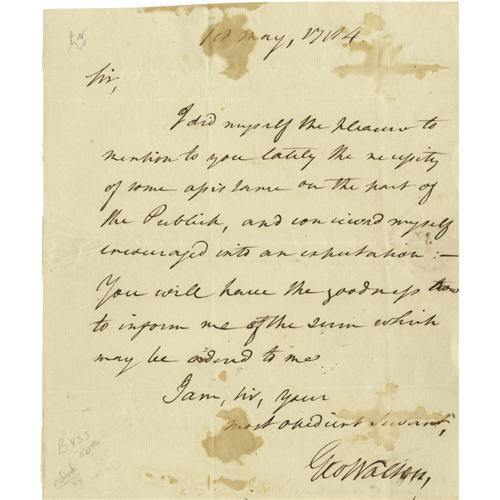 1st may, 1784.
Sir,
I did myself the pleasure to
mention to you lately the necessity
of some assistance on the part of
the Publick, and conceived myself
encouraged into an expectation :—
You will have the goodness
to inform me of the sum which
may be ordered to me
I am, sir, your
most obedient servant,
Geo Walton,
B 423